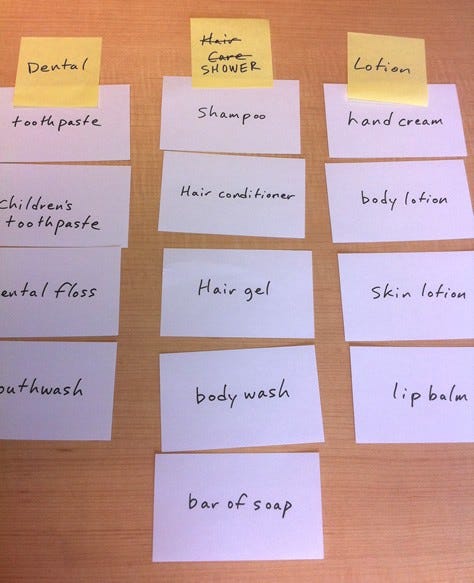 Dental
toothpaste
Children's
toothpaste
ental floss
outhwash
Hair
Care
SHOWER
Shampoo
Hair conditioner
Hair gel
body wash
bar of soap
Lotion
hand cream
body lotion
Skin lotion
lip balm